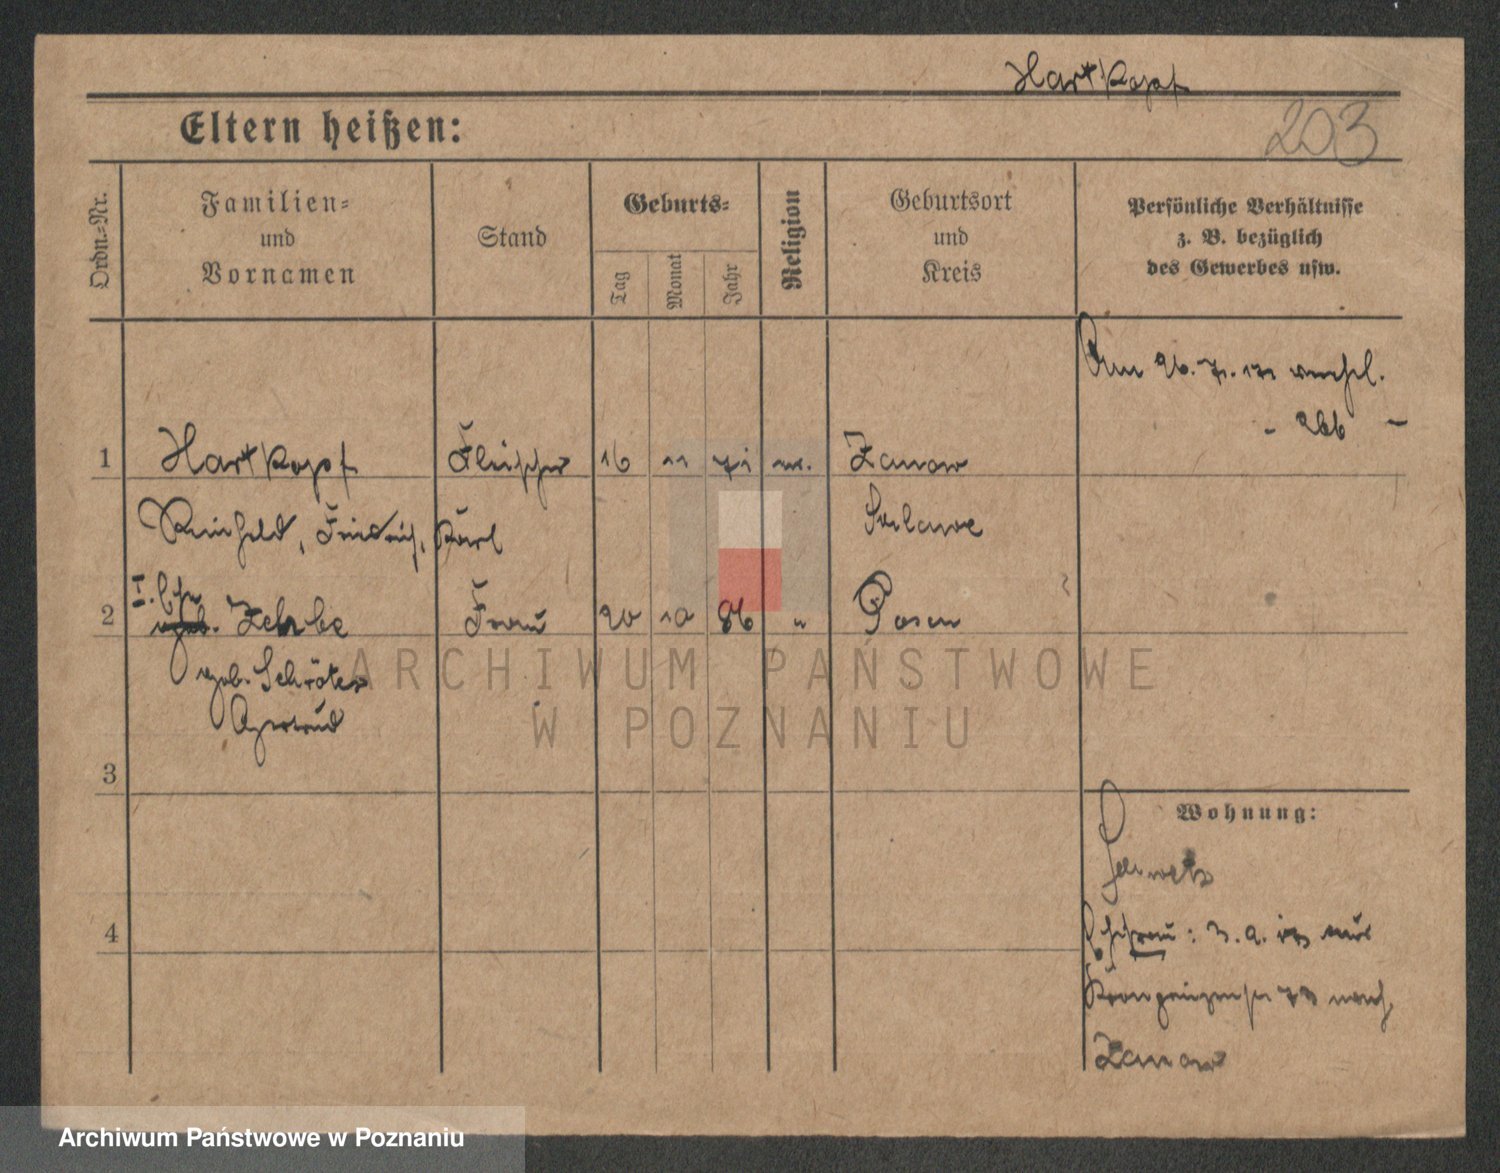 Hartkopf
203
Eltern heißen:
Ordn.-Nr.
Familien-
und
Vornamen
Stand
Geburts-
Tag
Monat
Jahr
Religion
Geburtsort
und
Kreis
Persönliche Verhältnisse
z. B. bezüglich
des Gewerbes usw.
Am 26. 7.
- abb -
1 Hartkopf Fleischer 16 11 71 Zanow
Reinhold, Friedrich, Karl Schlawe
2 I. Zehbe Frau 20 10 86 " Posen
geb. Schröter
Gertrud
3
Wohnung:
4
Ehefrau: 3. 9.
Kronprinzenstr 73 nach
Zanow
ARCHIWUM PAŃSTWOWE
W POZNANIU
Archiwum Państwowe w Poznaniu